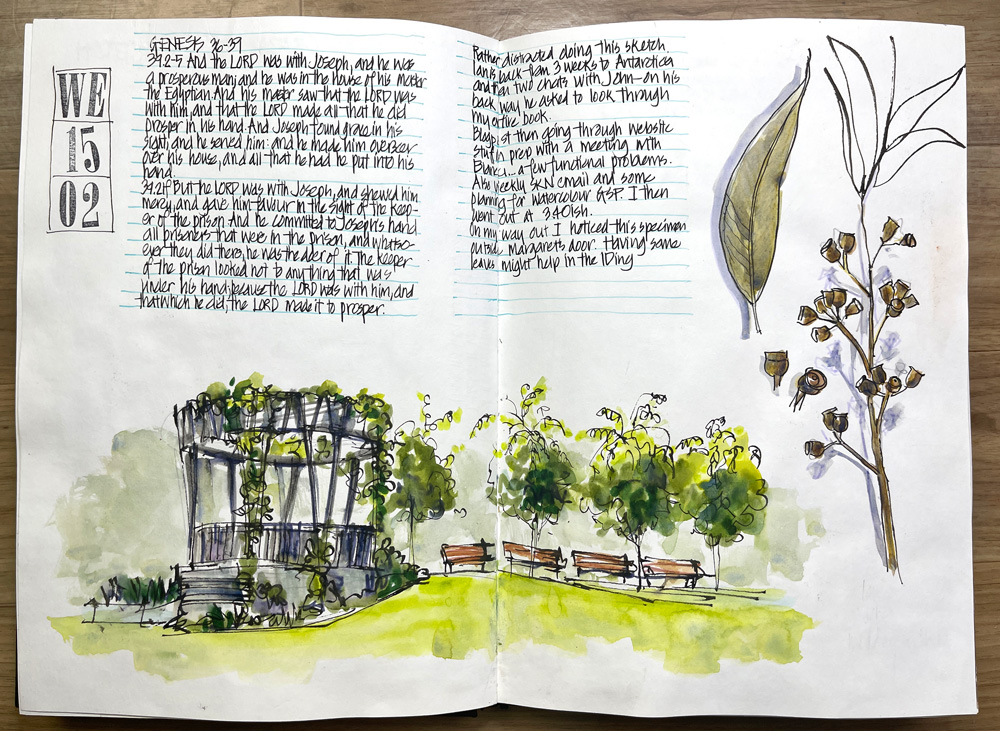 WE
15
02
GENESIS 36-39
39.2-5 And the LORD was with Joseph, and he was
a prosperous man; and he was in the house of his master
the Egyptian. And his master saw that the LORD was
with him, and that the LORD made all that he did
prosper in his hand. And Joseph found grace in his
sight, and he served him: and he made him overseer
over his house, and all that he had he put into his
hand.
39.21f But the LORD was with Joseph, and shewed him
mercy, and gave him favour in the sight of the keep-
er of the prison. And he committed to Joseph's hand
all prisoners that were in the prison, and whatso-
ever they did there, he was the doer of it. The keeper
of the prison looked not to anything that was
under his hand; because the LORD was with him, and
that which he did, the LORD made it to prosper.
Rather distracted doing this sketch.
Ian is back from 3 weeks to Antarctica
and had two chats with John - on his
back way he asked to look through
my entire book.
Blog post then going through website
stuff in prep with a meeting with
Bianca... a few functional problems.
Also weekly SKN email and some
planning for watercolour GSP. I then
went out at 3.40ish.
On my way out I noticed this specimen
outside Margaret's door. Having some
leaves might help in the IDing